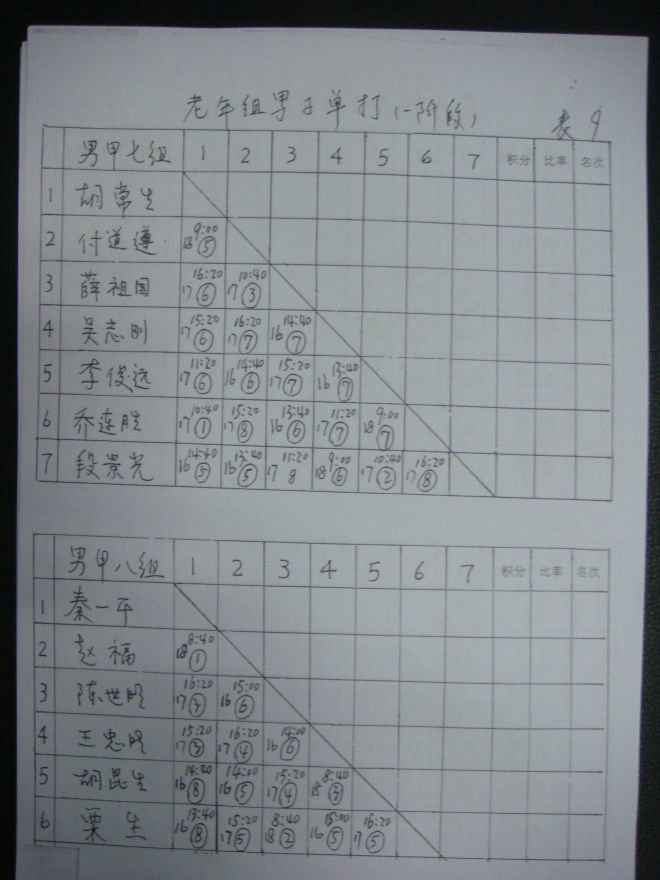 老年组男子单打(一阶段)
表9
男甲七组 1 2 3 4 5 6 7 积分 比率 名次
1 胡常生
2 付道遵 18 9:00 ⑤
3 薛祖国 17 16:20 ⑥ 17 10:40 ③
4 吴志刚 17 15:20 ⑥ 17 16:20 ⑦ 16 14:40 ⑦
5 李俊远 17 11:20 ⑥ 16 14:40 ⑥ 17 15:20 ⑦ 16 13:40 ⑦
6 乔连胜 17 10:40 ① 17 15:20 ⑧ 16 13:40 ⑥ 17 11:20 ⑦ 18 9:00 ⑦
7 段景光 16 14:40 ⑤ 16 13:40 ⑤ 17 11:20 8 18 9:00 ⑥ 17 10:40 ② 17 16:20 ⑧
男甲八组 1 2 3 4 5 6 7 积分 比率 名次
1 秦一平
2 赵福 18 8:40 ①
3 陈世明 17 16:20 ③ 16 15:00 ⑥
4 王忠明 17 15:20 ③ 17 16:20 ④ 16 14:00 ⑥
5 胡昆生 16 14:40 ⑧ 16 14:00 ⑤ 17 15:20 ④ 18 8:40 ③
6 栗生 16 13:40 ⑧ 17 15:20 ⑤ 18 8:40 ② 16 15:00 ⑤ 17 16:20 ⑤